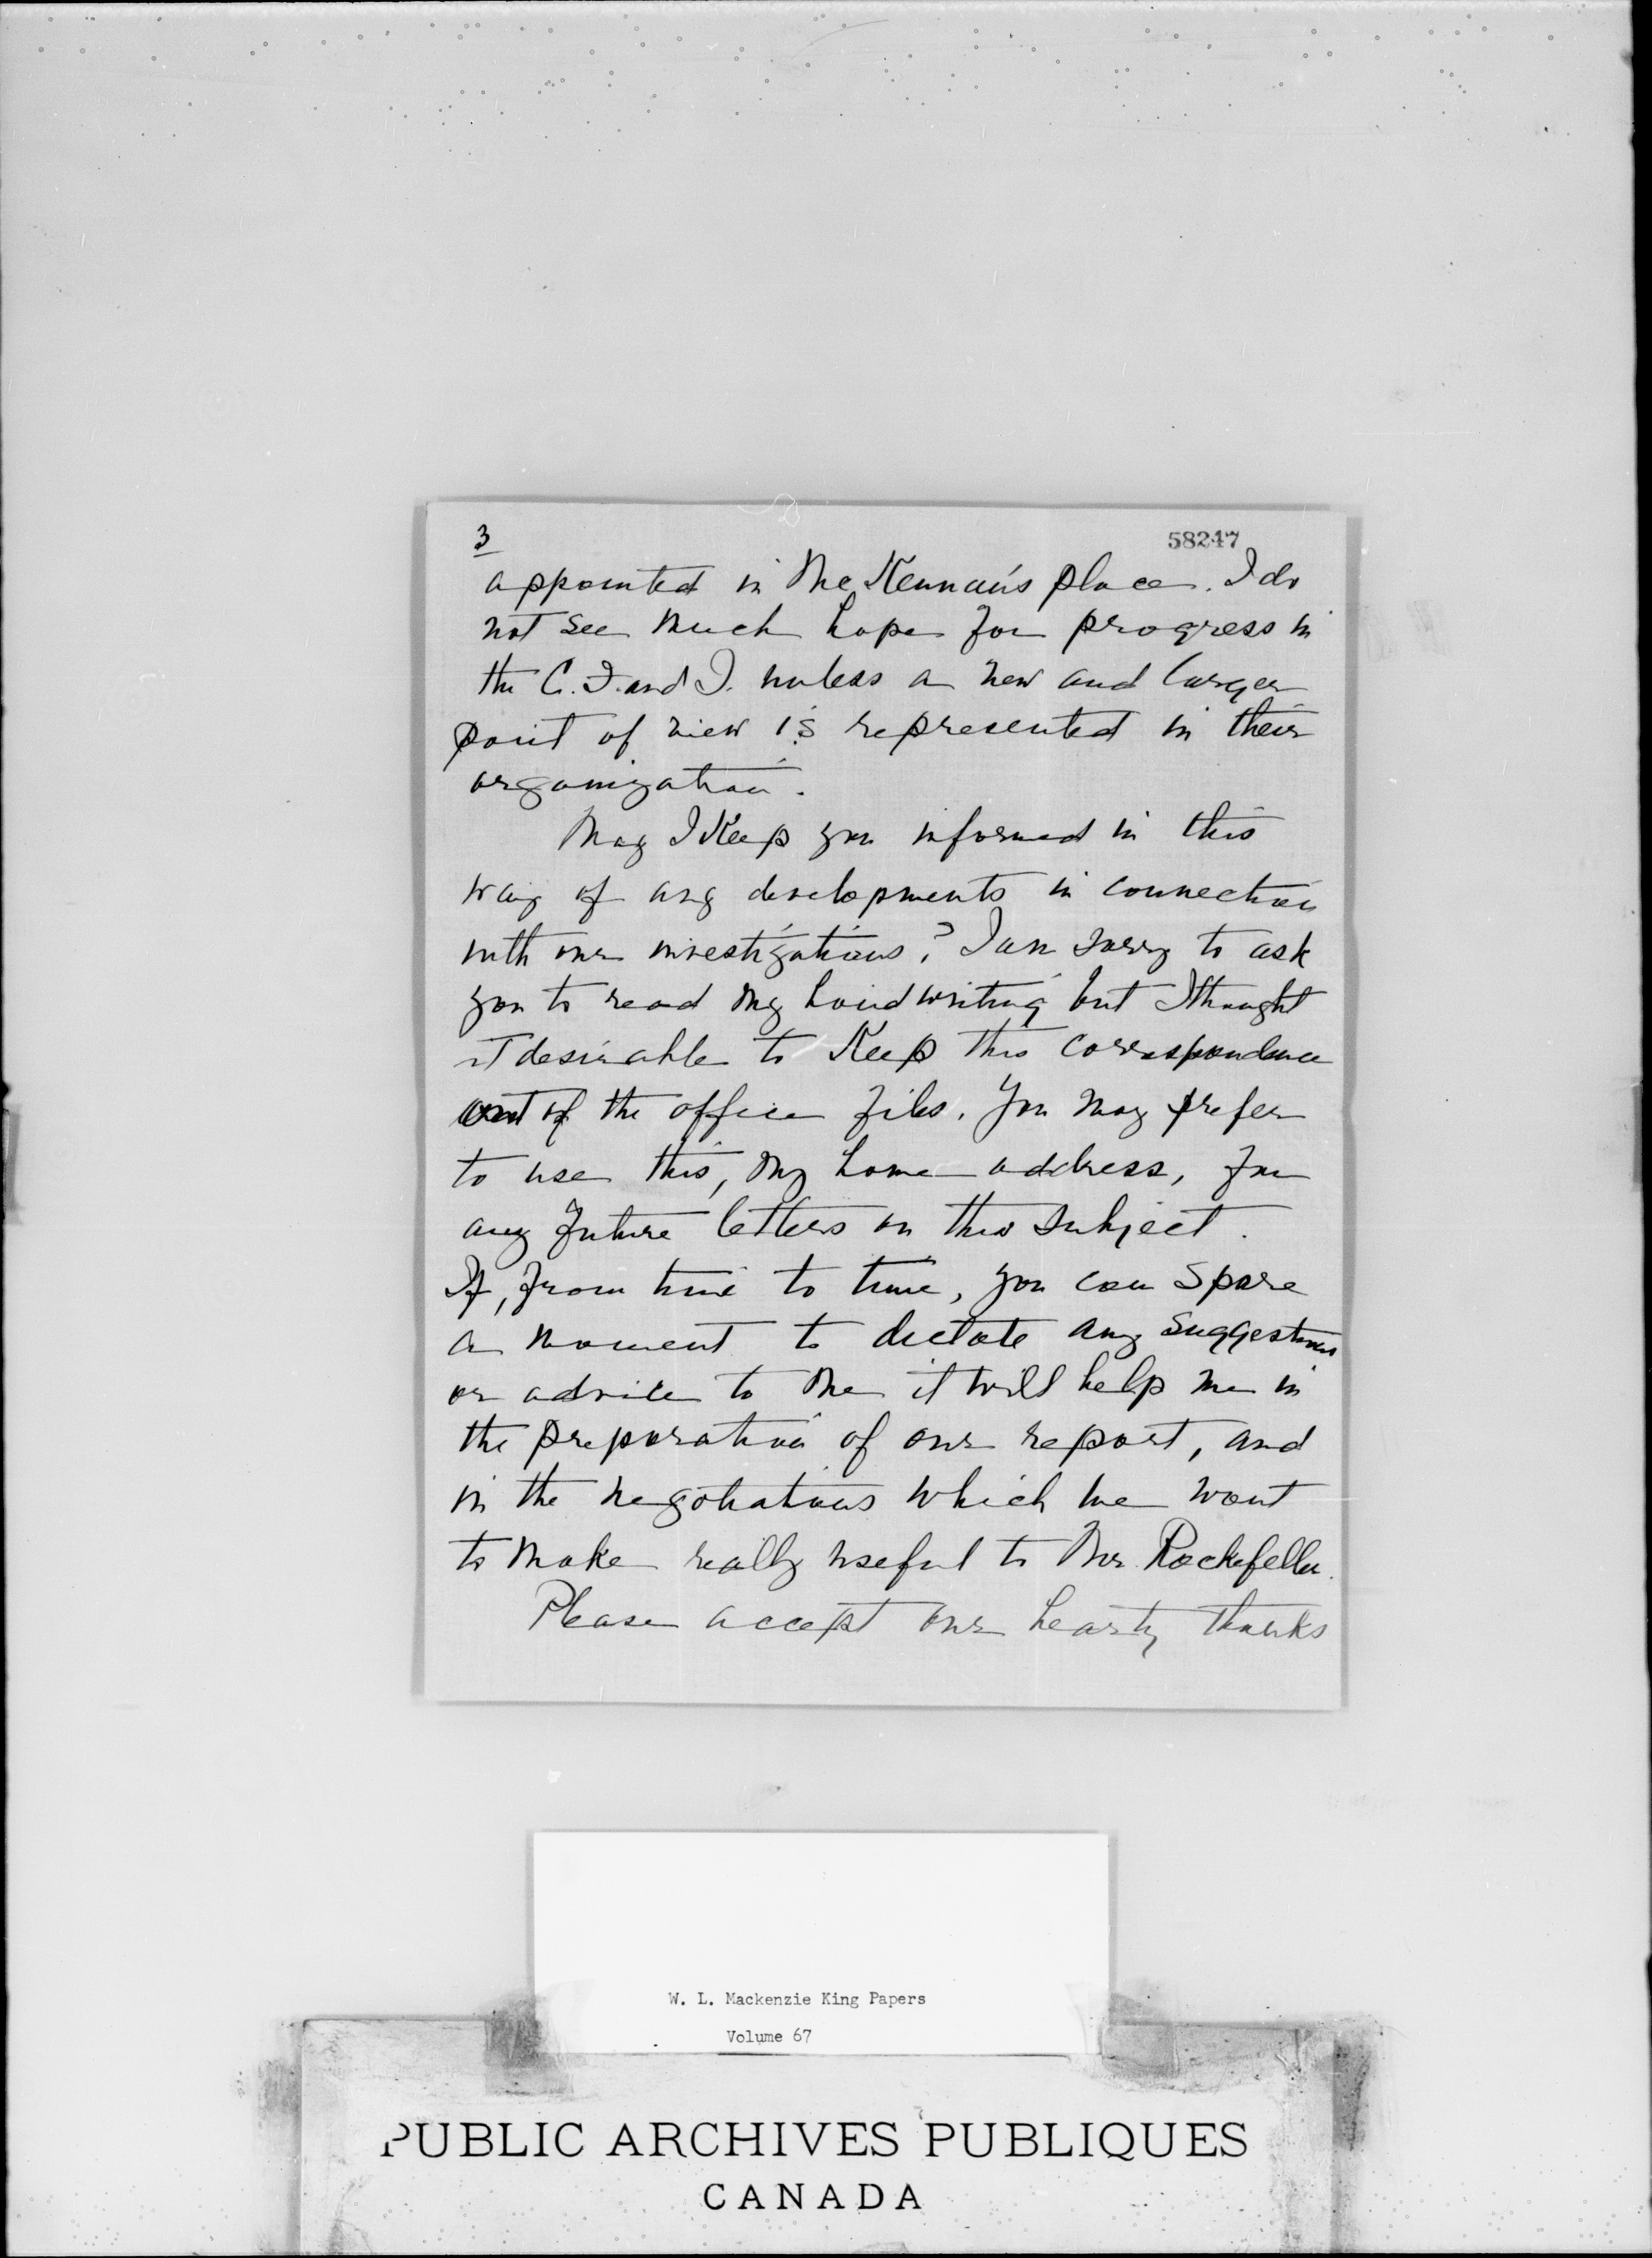 3
58247
appointed in McKennan's place. I do
not see much hope for progress in
the C.F. and I. unless a new and larger
point of view is represented in their
organization.
May I keep you informed in this
way of any developments in connection
with our investigations? I am sorry to ask
you to read my handwriting but I thought
it desirable to keep this correspondence
out of the office files. You may prefer
to use this, my home address, for
any future letters on this subject.
If, from time to time, you can spare
a moment to dictate any suggestions
or advice to me it will help me in
the preparation of our report, and
in the negotiations which we want
to make really useful to Mr. Rockefeller.
Please accept our hearty thanks
W. L. Mackenzie King Papers
Volume 67
PUBLIC ARCHIVES PUBLIQUES
CANADA